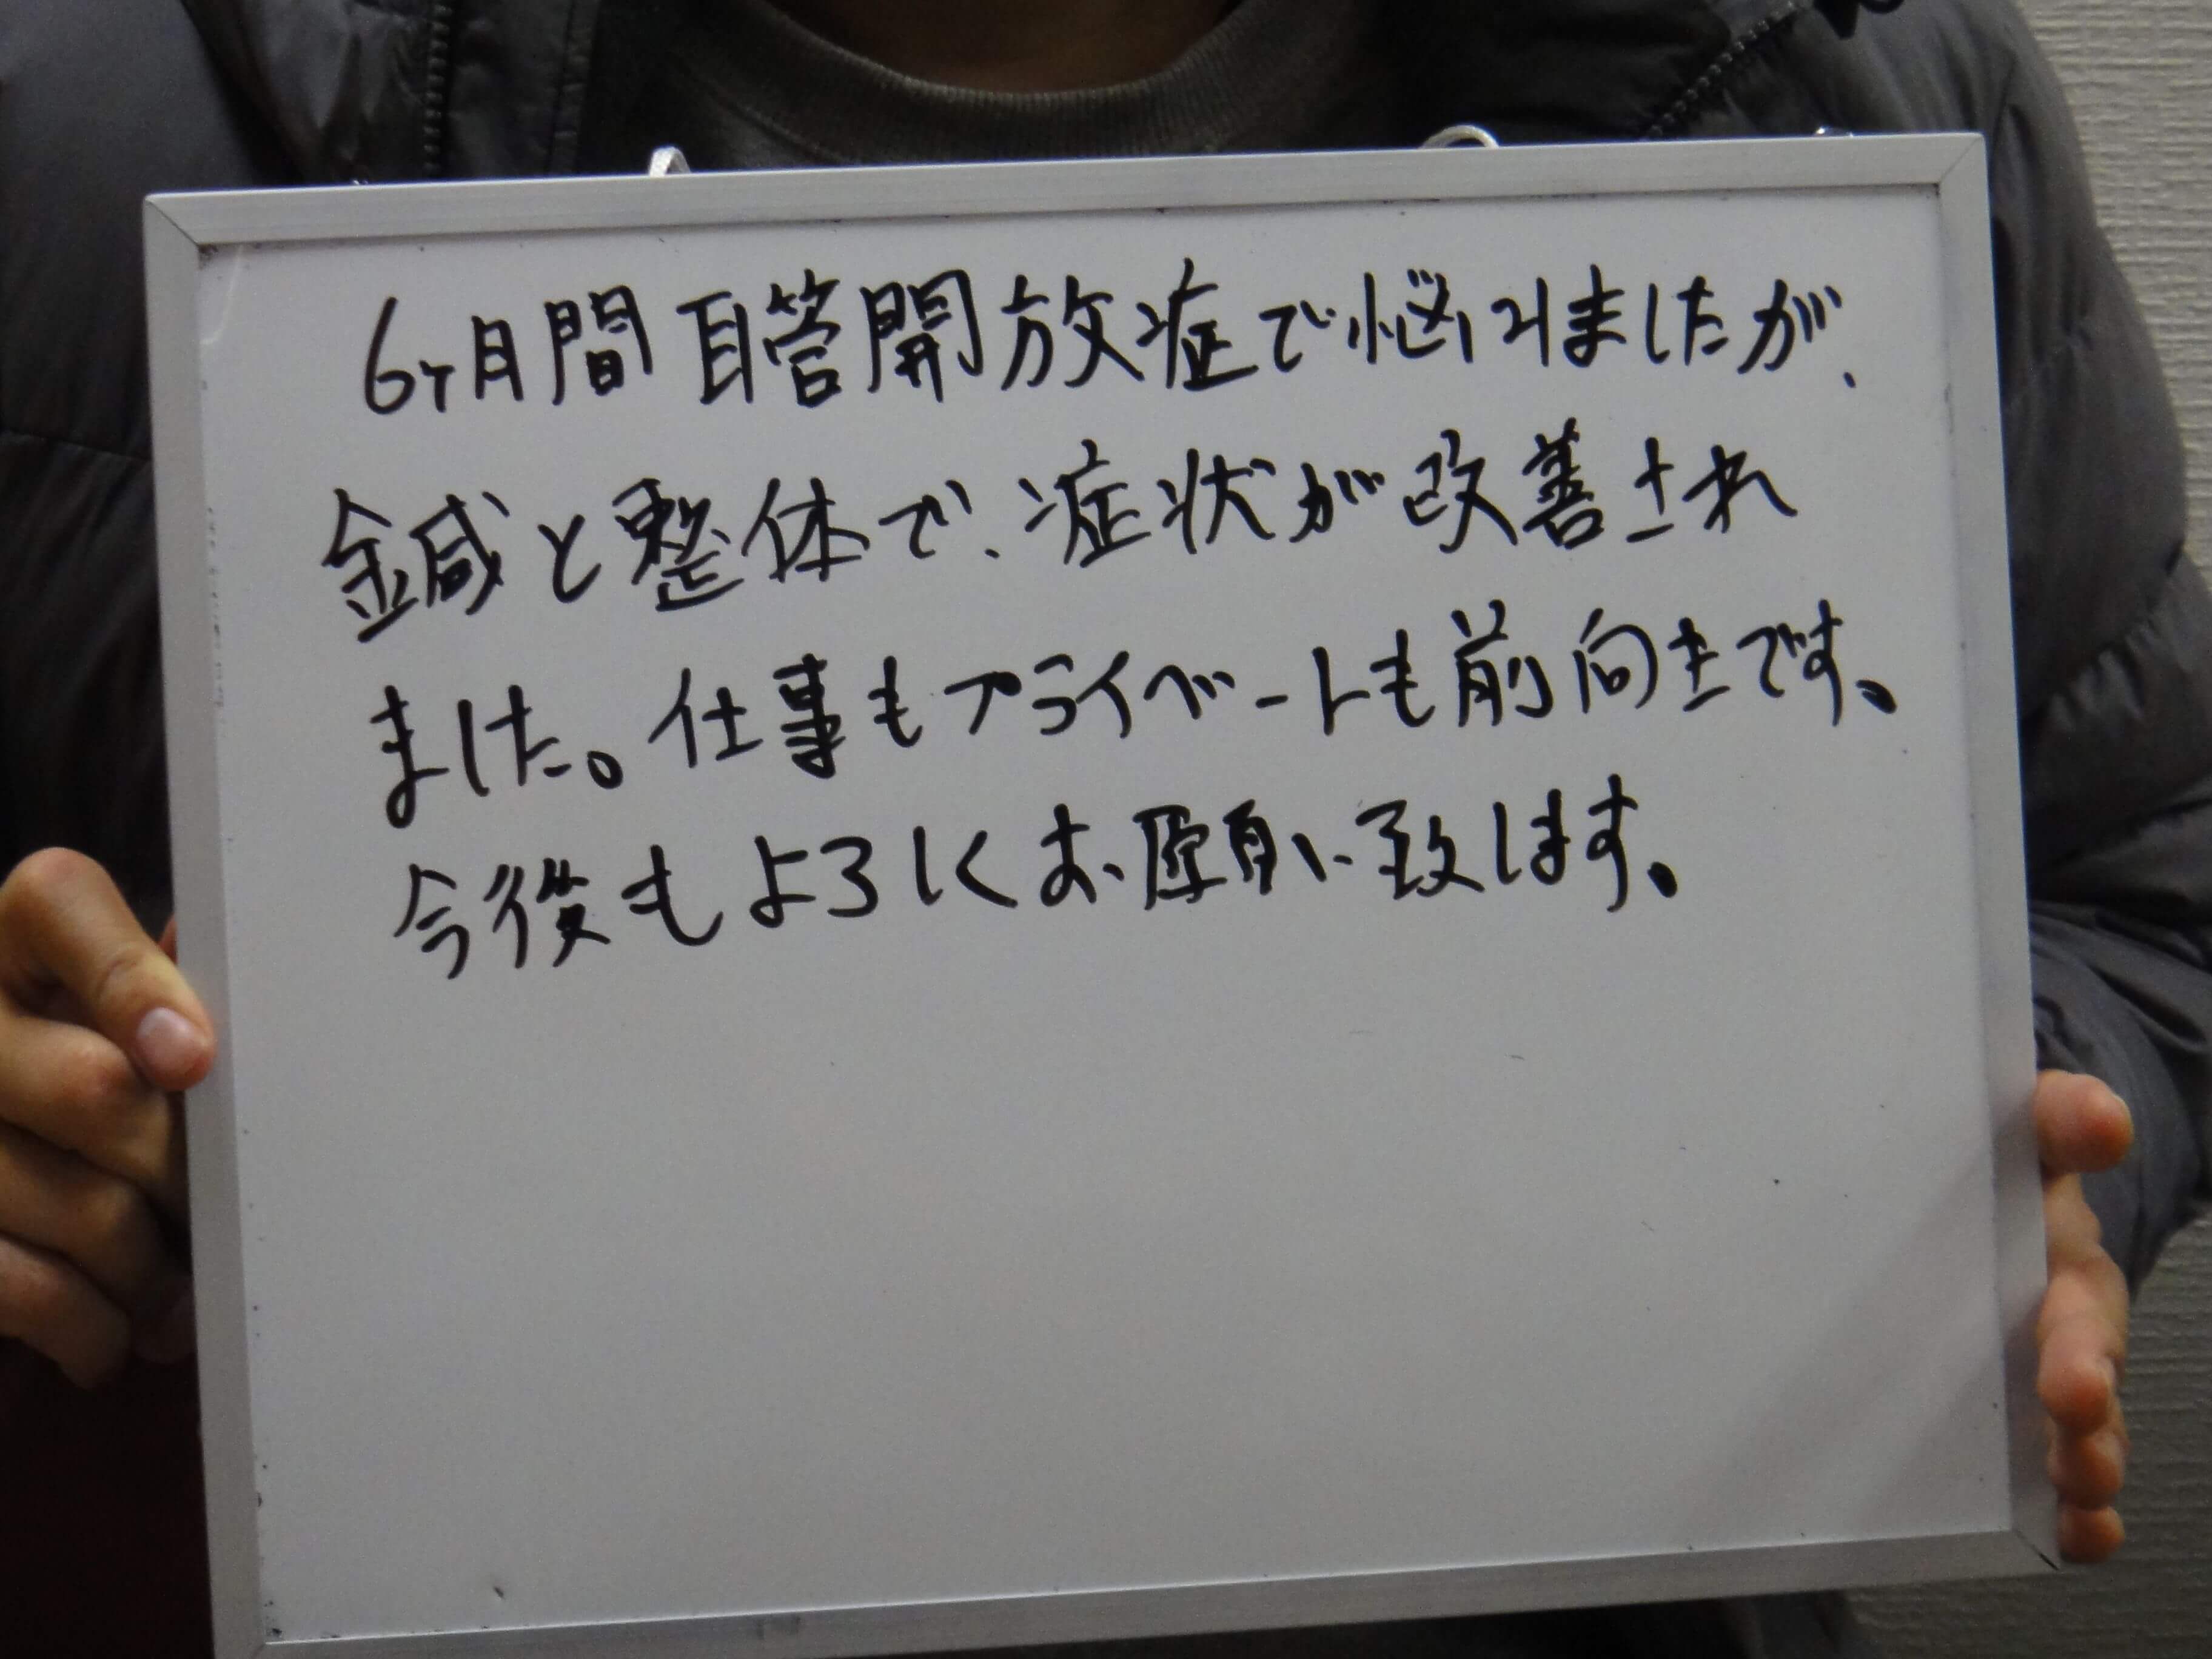 6ヶ月間耳管開放症で悩みましたが、
鍼と整体で、症状が改善され
ました。仕事もプライベートも前向きです。
今後もよろしくお願い致します。